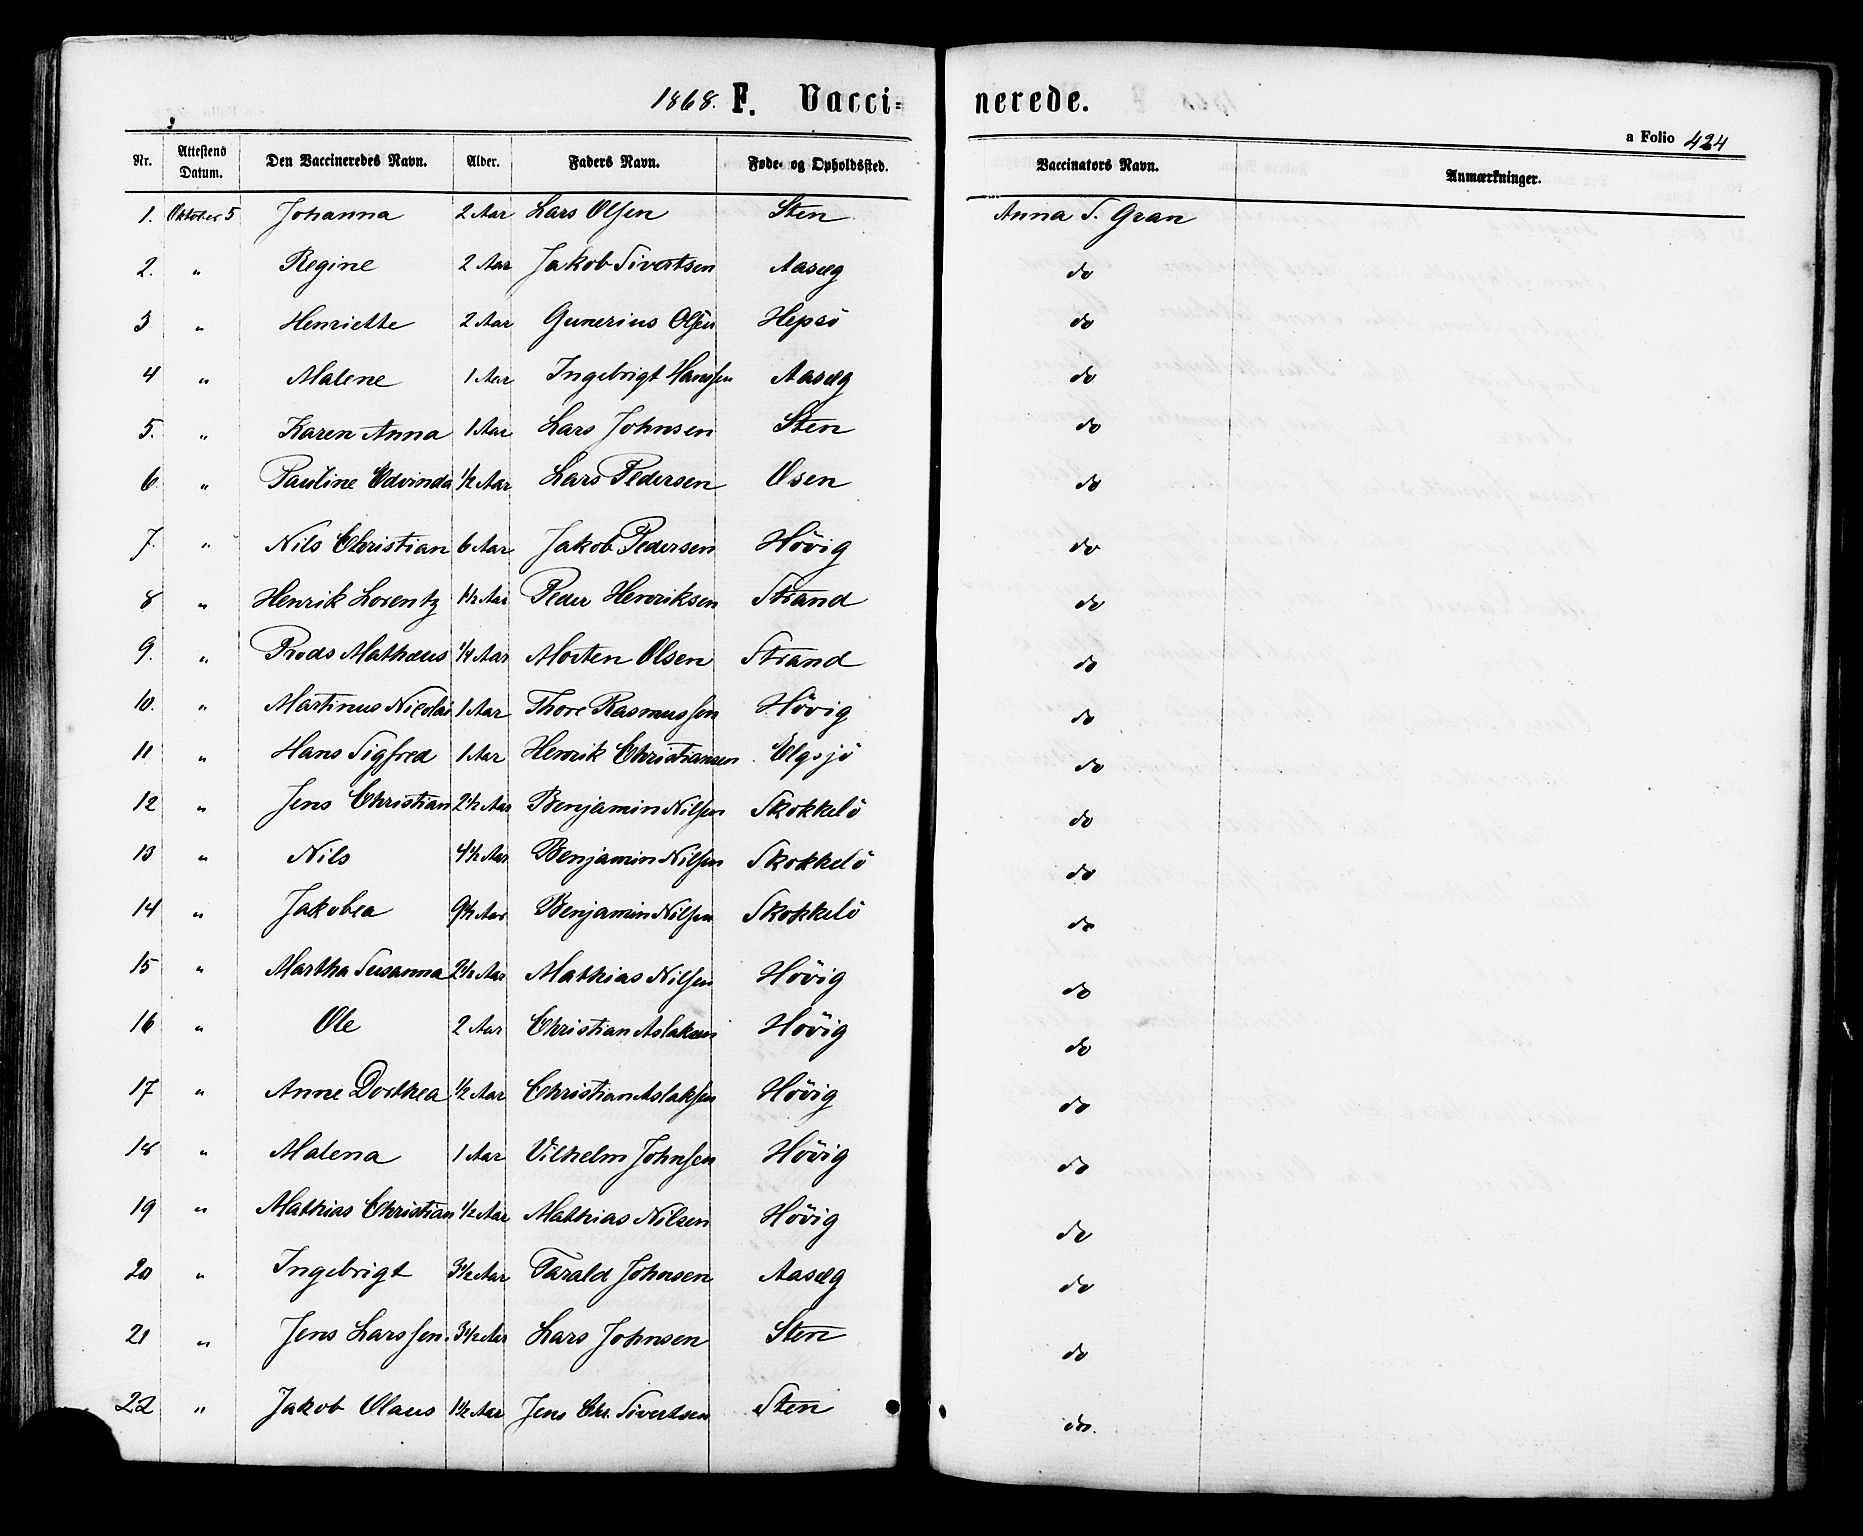 1868. F. Vacci- nerede.
a Folio 424
Nr. Attestens Datum. Den Vaccineredes Navn. Alder. Faders Navn. Føde- og Opholdssted. Vaccinators Navn. Anmærkninger.
1. Oktober 5 Johanna 2 Aar Lars Olsen Sten Anna S. Gran
2. " Regine 2 Aar Jakob Sivertsen Aasæg do
3 " Henriette 2 Aar Gunerius Olsen Hepsö do
4 " Malene 1 Aar Ingebrigt Hanssen Aasæg do
5. " Karen Anna 1 Aar Lars Johnsen Sten do
6. " Pauline Edvinda 1/2 Aar Lars Pedersen Osen do
7. " Nils Christian 6 Aar Jakob Pedersen Hövig do
8 " Henrik Lorentz 1 1/2 Aar Peder Henriksen Strand do
9. " Mathæus 1/4 Aar Morten Olsen Strand do
10. " Martinus Nicolai 1 Aar Thore Rasmussen Hövig do
11 " Hans Sigfred 1 Aar Henrik Christiansen Elgsjö do
12 " Jens Christian 2 1/2 Aar Benjamin Nilsen Skokkelö do
13 " Nils 4 1/2 Aar Benjamin Nilsen Skokkelö do
14 " Jakobea 9 1/2 Aar Benjamin Nilsen Skokkelö do
15 " Martha Susanna 2 1/2 Aar Mathias Nilsen Hövig do
16 " Ole 2 Aar Christian Aslaksen Hövig do
17 " Anne Dorthea 1/2 Aar Christian Aslaksen Hövig do
18 " Malena 1 Aar Vilhelm Johnsen Hövig do
19 " Mathias Christian 1/2 Aar Mathias Nilsen Hövig do
20 " Ingebrigt 3 1/2 Aar Tarald Johnsen Aasæg do
21 " Jens Larssen. 3 1/2 Aar Lars Johnsen Sten do
22 " Jakob Olaus 1 1/2 Aar Jens Chr. Sivertsen Sten do.